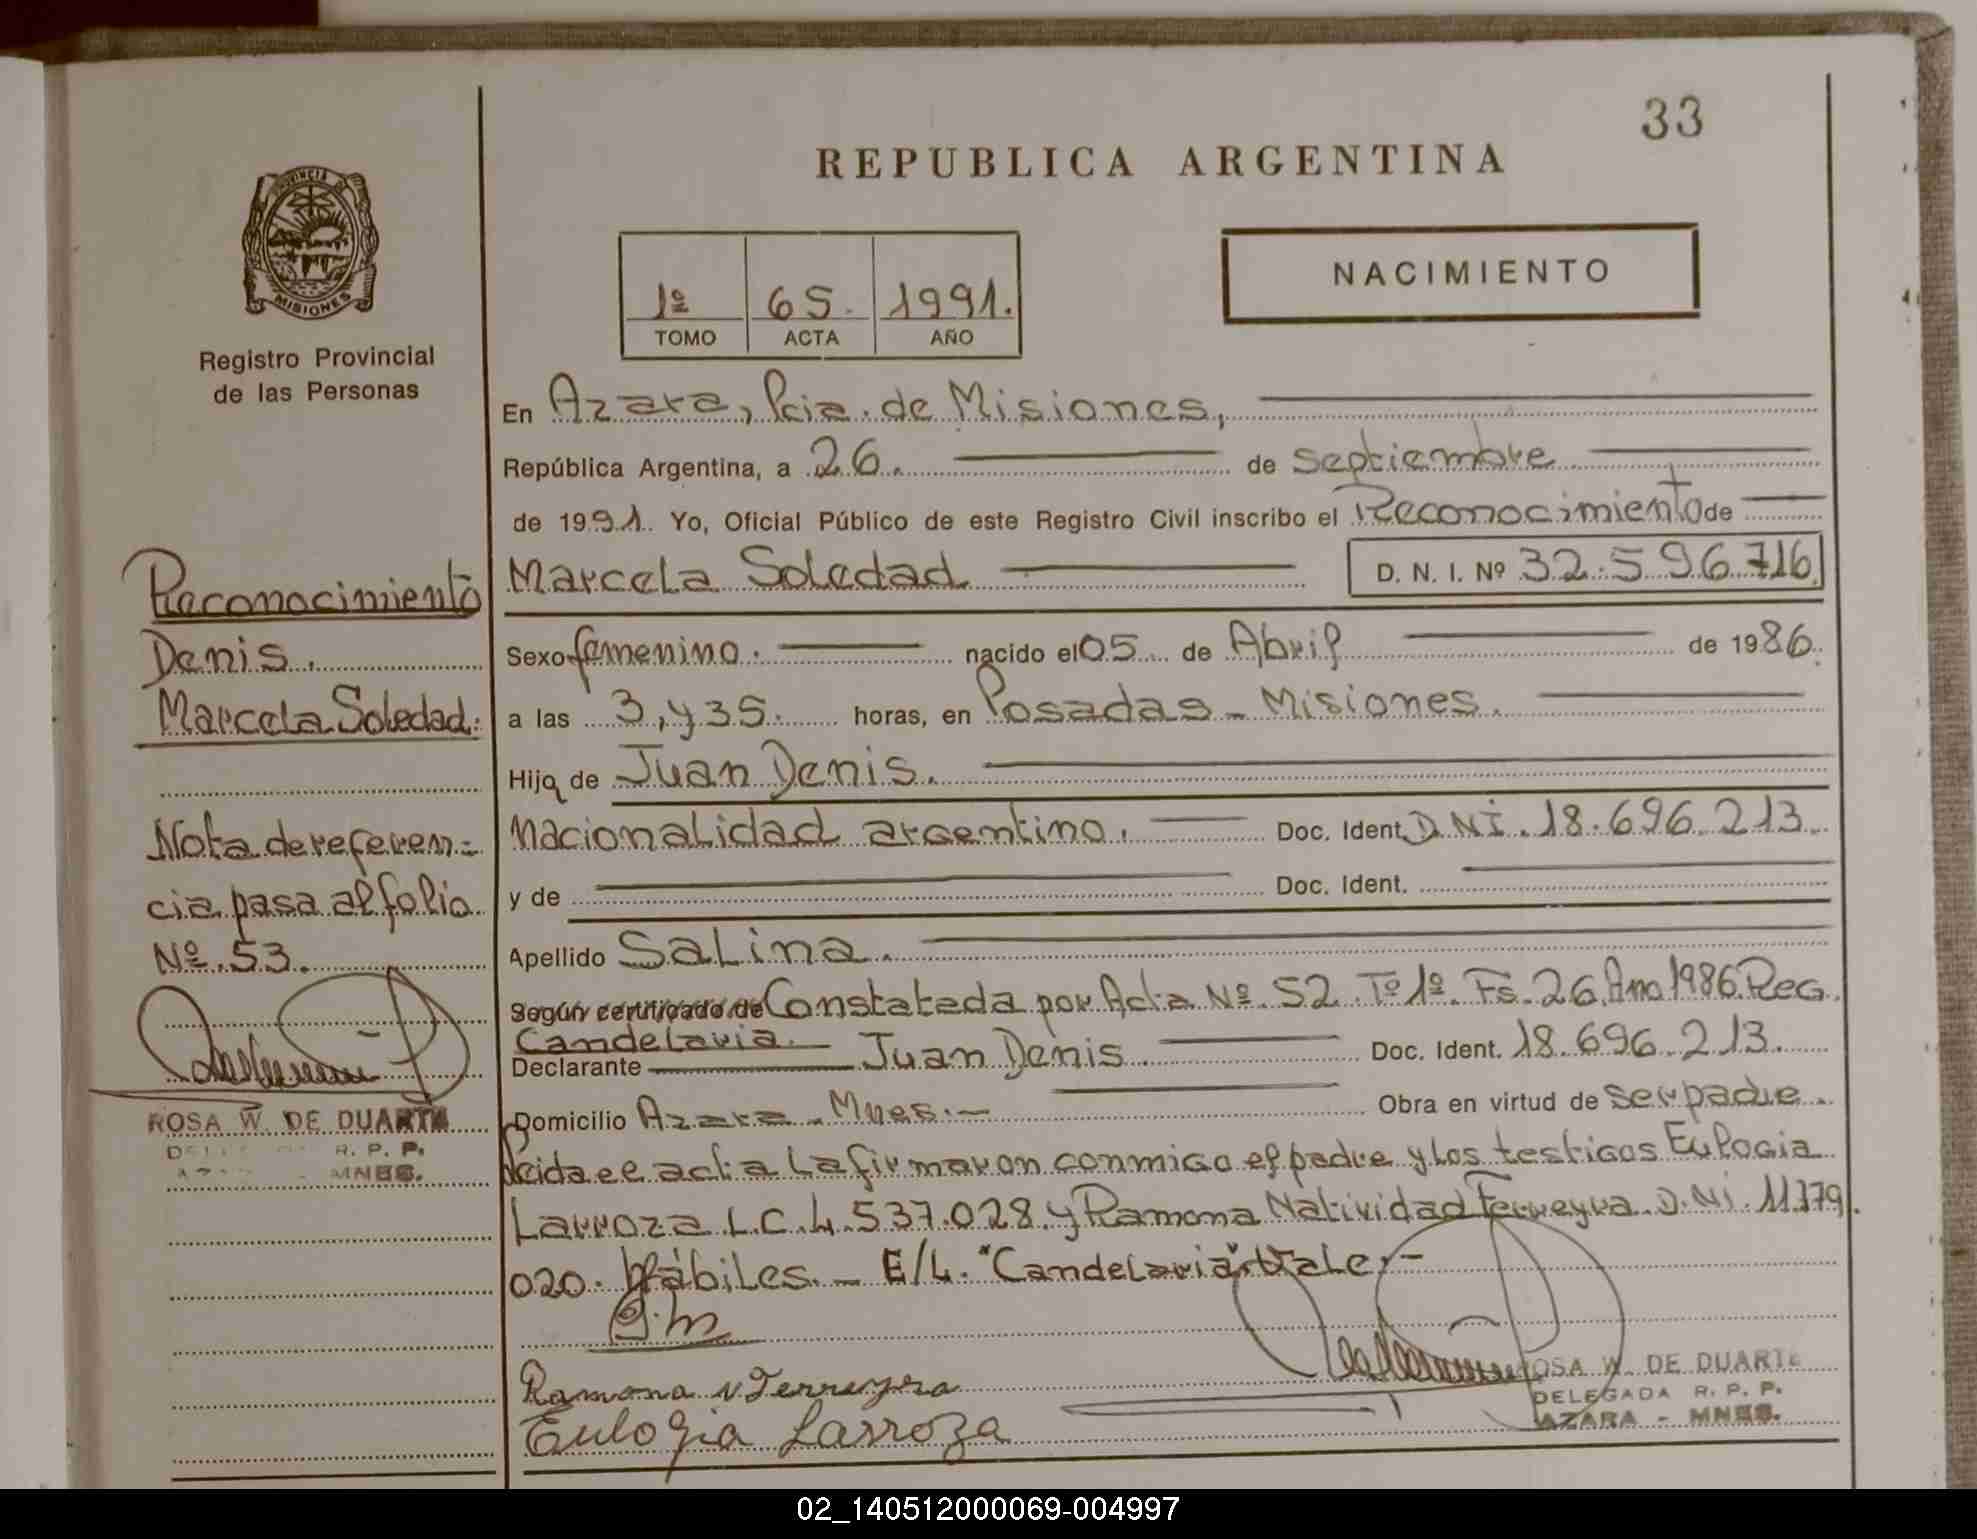 33
REPUBLICA ARGENTINA
PROVINCIA DE
MISIONES
NACIMIENTO
1º 65. 1991.
TOMO ACTA AÑO
Registro Provincial
de las Personas
En Azara, Pcia. de Misiones,
República Argentina, a 26. de septiembre
de 1991. Yo, Oficial Público de este Registro Civil inscribo el Reconocimiento de
Marcela Soledad D. N. I. Nº 32.596.716
Sexo femenino. nacido el 05 de Abril de 1986.
a las 3, y 35. horas, en Posadas - Misiones.
Hija de Juan Denis.
Nacionalidad argentino. Doc. Ident. DNI. 18.696.213.
y de Doc. Ident.
Apellido Salina.
Según certificado de Constatada por Acta Nº 52. Tº 1º. Fs. 26. Año 1986. Reg.
Candelaria.
Declarante Juan Denis. Doc. Ident. 18.696.213.
Domicilio Azara - Mnes.- Obra en virtud de ser padre.
Leida el acta la firmaron conmigo el padre y los testigos Eulogia
Larroza L.C. 4.537.028. y Ramona Natividad Ferreyra D.NI. 11.379.
020. Hábiles. - E/L. "Candelaria" Vale.-
Ramona N Ferreyra
Eulogia Larroza
ROSA W. DE DUARTE
DELEGADA R. P. P.
AZARA - MNES.
Reconocimiento
Denis.
Marcela Soledad.
Nota de referen=
cia pasa al folio
Nº 53.
ROSA W. DE DUARTE
R. P. P.
- MNES.
02_140512000069-004997